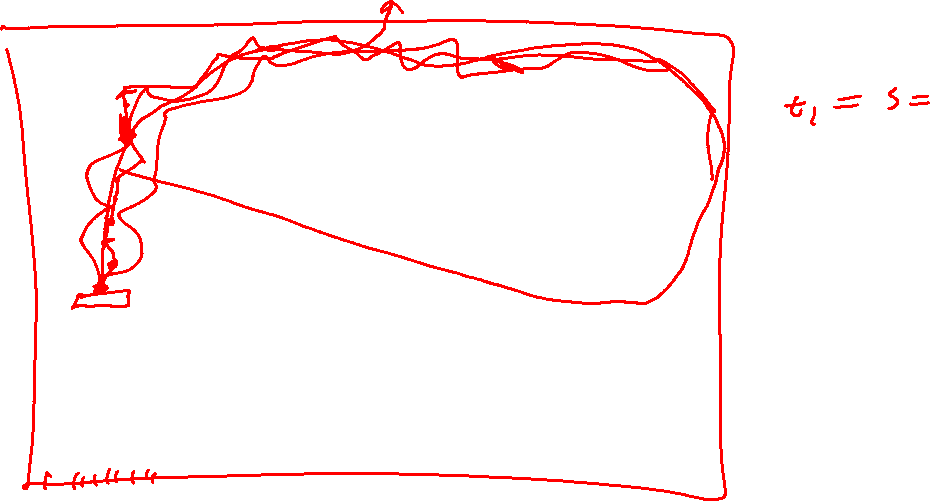 t₁ = s =